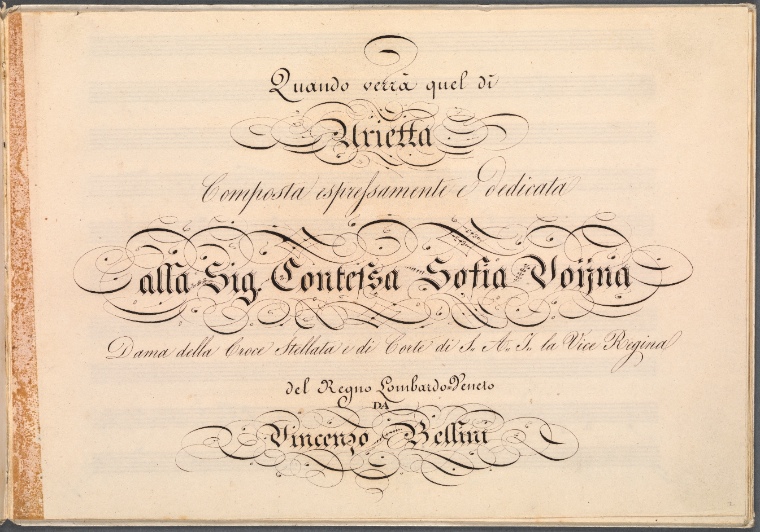 Quando verrà quel dì
Arietta
Composta espressamente e dedicata
alla Sig. Contessa Sofia Voijna
Dama della Croce Stellata e di Corte di S. A. I. la Vice Regina
del Regno Lombardo-Veneto
DA
Vincenzo Bellini